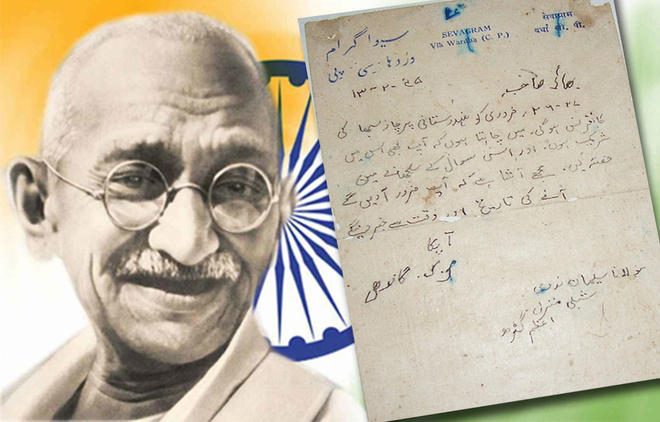 سیوا گرام
SEVAGRAM
Via Wardha (C. P.)
सेवाग्राम
वर्धा सी. पी.
وردھا سی پی
۱۳-۲-۴۵
بھائی صاحب
۲۶-۲۷ فروری کو ہندوستانی پرچار سبھا کی
کانفرنس ہوگی. میں چاہتا ہوں کہ آپ بھی اس میں
شریک ہوں. اور اس سوال کے سلجھانے میں
حصہ لیں. مجھے آشا ہے کہ آپ ضرور آویں گے
آنے کی تاریخ اور وقت سے خبر دیں گے
آپکا
م. ک. گاندھی
مولانا سلیمان ندوی
شبلی منزل
اعظم گڑھ